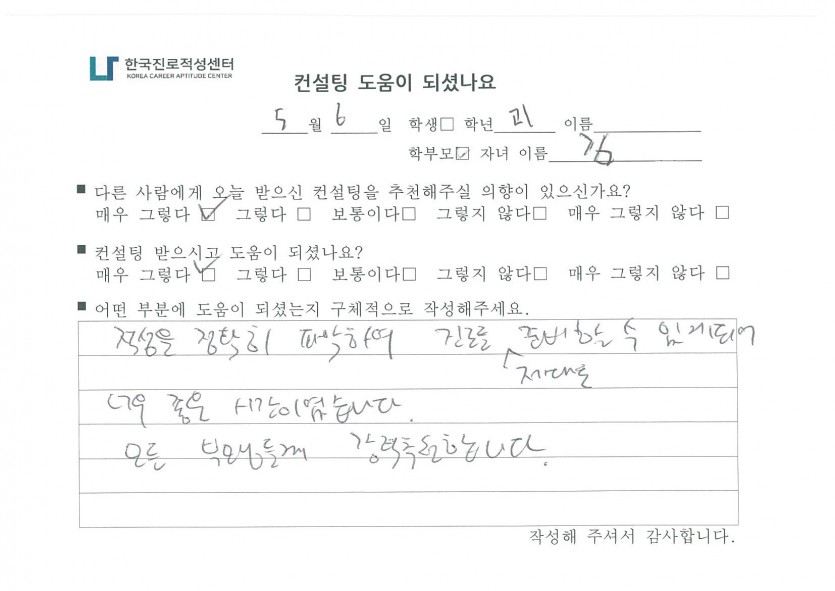 한국진로적성센터
KOREA CAREER APTITUDE CENTER
컨설팅 도움이 되셨나요
5 월 6 일 학생□ 학년 고1 이름
학부모☑ 자녀 이름 김
■ 다른 사람에게 오늘 받으신 컨설팅을 추천해주실 의향이 있으신가요?
매우 그렇다 ☑ 그렇다 □ 보통이다□ 그렇지 않다□ 매우 그렇지 않다 □
■ 컨설팅 받으시고 도움이 되셨나요?
매우 그렇다 ☑ 그렇다 □ 보통이다□ 그렇지 않다□ 매우 그렇지 않다 □
■ 어떤 부분에 도움이 되셨는지 구체적으로 작성해주세요.
적성을 정확히 파악하여 진로를 준비할 수 있게되어
제대로
너무 좋은 시간이였습니다.
모든 부모님들께 강력추천합니다.
작성해 주셔서 감사합니다.